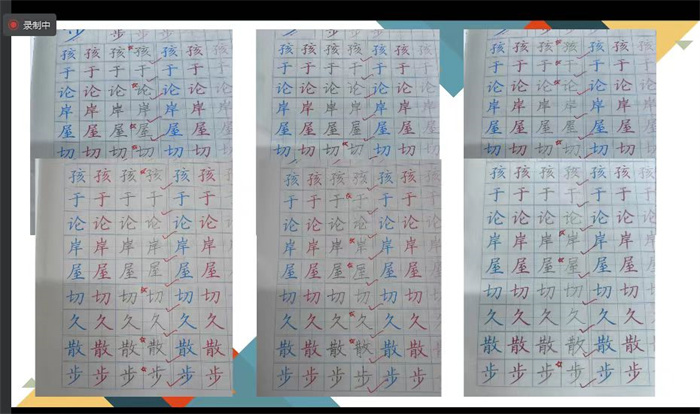 录制中
步 步 步 步 步 步
孩 孩 孩 孩 孩 孩 孩
于 于 于 于 于 于 于
论 论 论 论 论 论 论
岸 岸 岸 岸 岸 岸 岸
屋 屋 屋 屋 屋 屋 屋
切 切 切 切 切 切 切
孩 孩 孩 孩 孩 孩 孩
于 于 于 于 于 于 于
论 论 论 论 论 论 论
岸 岸 岸 岸 岸 岸 岸
屋 屋 屋 屋 屋 屋 屋
切 切 切 切 切 切 切
孩 孩 孩 孩 孩 孩 孩
于 于 于 于 于 于 于
论 论 论 论 论 论 论
岸 岸 岸 岸 岸 岸 岸
屋 屋 屋 屋 屋 屋 屋
切 切 切 切 切 切 切
孩 孩 孩 孩 孩 孩
于 于 于 于 于 于
论 论 论 论 论 论
岸 岸 岸 岸 岸 岸
屋 屋 屋 屋 屋 屋
切 切 切 切 切 切
久 久 久 久 久 久
散 散 散 散 散 散
步 步 步 步 步 步
孩 孩 孩 孩 孩 孩 孩
于 于 于 于 于 于 于
论 论 论 论 论 论 论
岸 岸 岸 岸 岸 岸 岸
屋 屋 屋 屋 屋 屋 屋
切 切 切 切 切 切 切
久 久 久 久 久 久 久
散 散 散 散 散 散 散
步 步 步 步 步 步 步
孩 孩 孩 孩 孩 孩 孩
于 于 于 于 于 于 于
论 论 论 论 论 论 论
岸 岸 岸 岸 岸 岸 岸
屋 屋 屋 屋 屋 屋 屋
切 切 切 切 切 切 切
久 久 久 久 久 久 久
散 散 散 散 散 散 散
步 步 步 步 步 步 步